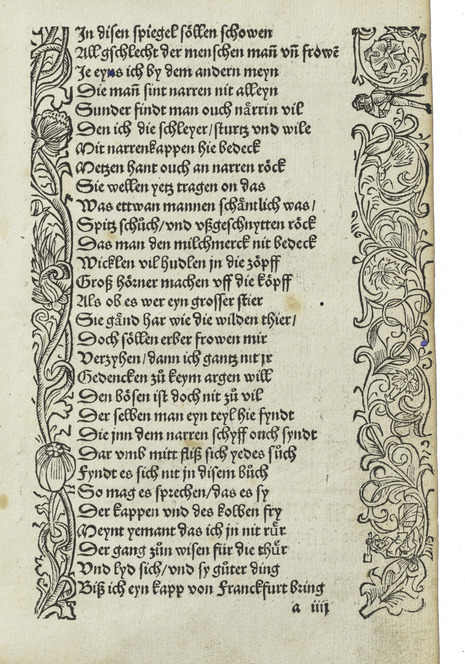 In disen spiegel söllen schowen
All gschlecht der menschen mañ vñ frowẽ
Je eyns ich by dem andern meyn
Die mañ sint narren nit alleyn
Sunder findt man ouch nårrin vil
Den ich die schleyer/sturtz vnd wile
Mit narrenkappen hie bedeck
Metzen hant ouch an narren röck
Sie wellen yetz tragen on das
Was ettwan mannen schåntlich was/
Spitz schůch/vnd vßgeschnytten röck
Das man den milchmerck nit bedeck
Wicklen vil hudlen jn die zöpff
Groß hörner machen vff die köpff
Als ob es wer eyn grosser stier
Sie gånd har wie die wilden thier/
Doch söllen erber frowen mir
Verzyhen/dann ich gantz nit jr
Gedencken zů keym argen will
Den bösen ist doch nit zů vil
Der selben man eyn teyl hie fyndt
Die jnn dem narren schyff ouch syndt
Dar vmb mitt fliß sich yedes sůch
Fyndt es sich nit jn disem bůch
So mag es sprechen/das es sy
Der kappen vnd des kolben fry
Meynt yemant das ich jn nit růr
Der gang zůn wisen für die thür
Vnd lyd sich/vnd sy gůter ding
Biß ich eyn kapp von Franckfurt bring
a iiij